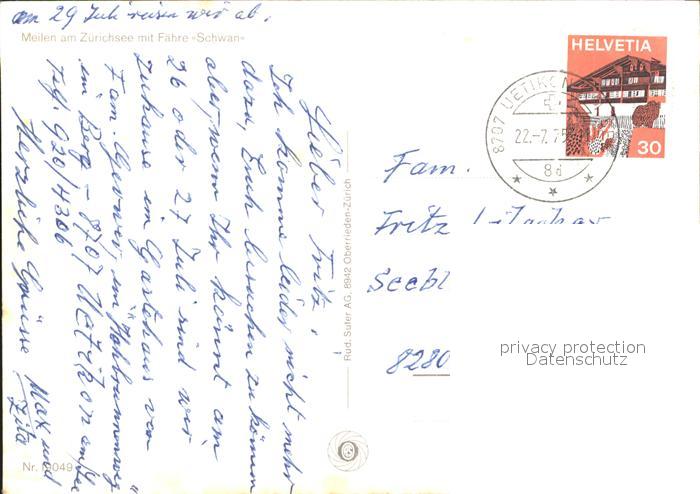 am 29 Juli reisen wir ab.
Meilen am Zürichsee mit Fähre «Schwan»
Lieber Fritz,
Ich komme leider nicht mehr
dazu, Euch besuchen zu können
aber, wenn Ihr könnt am
26 oder 27 Juli sind wir
zuhause im Gartenhaus von
Fam. im
im Berg - 8707 Uetikon am See
Telf. 920/4306
Herzliche Grüsse Max und
Zita
Nr. 19049
Rüd. Suter AG, 8942 Oberrieden-Zürich
HELVETIA
30
8707 UETIKON
22.-7.75
8d
Fam.
Fritz
Seebl
8280
privacy protection
Datenschutz